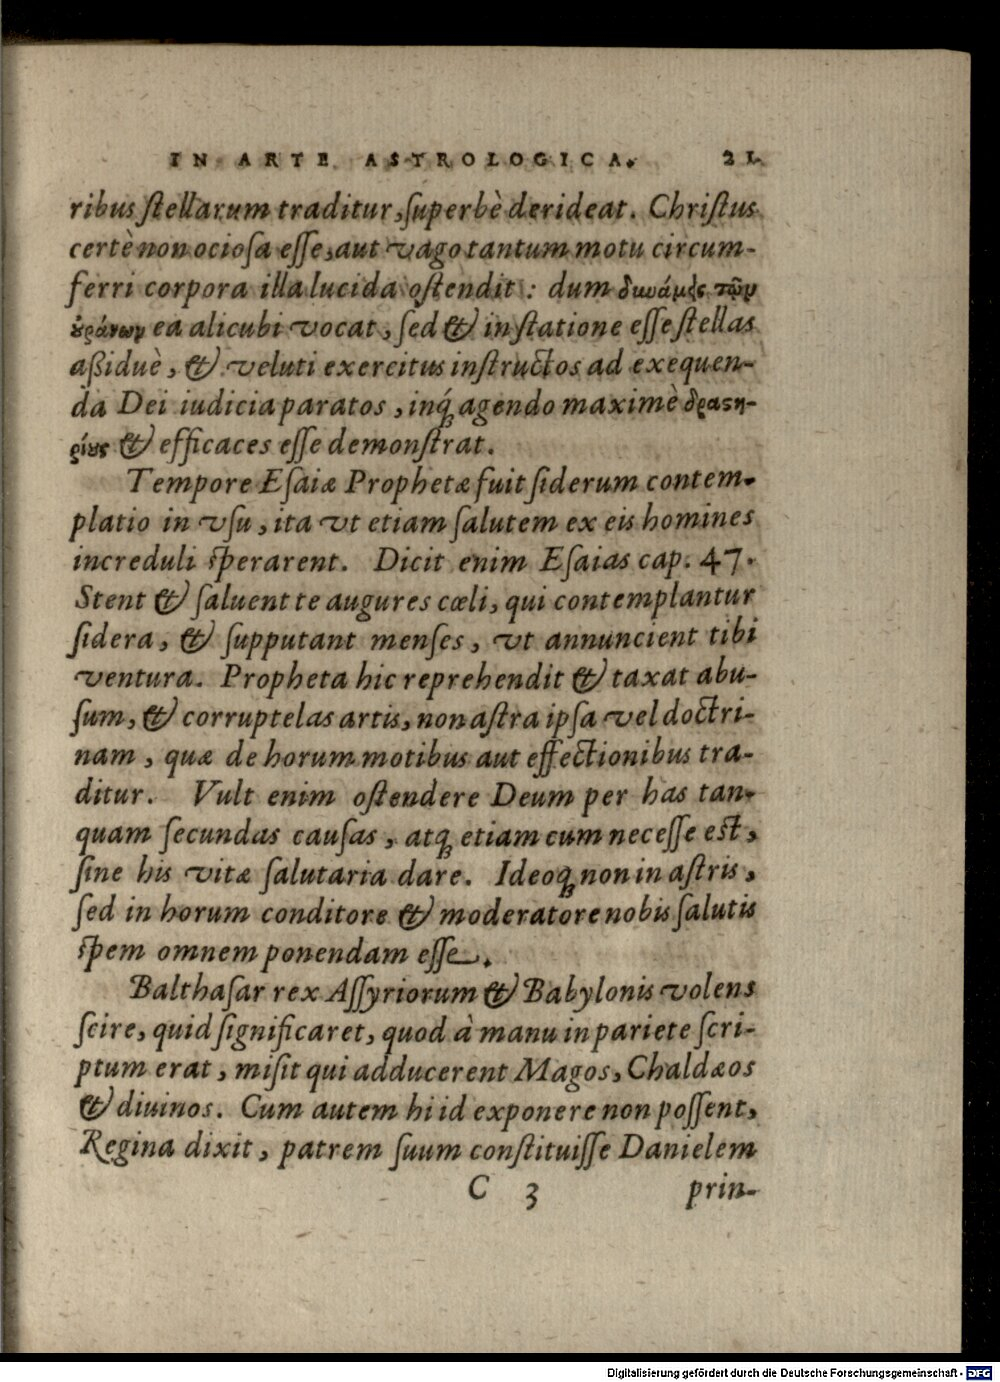 IN ARTE ASTROLOGICA. 21
ribus ſtellarum traditur, ſuperbè derideat. Chriſtus
certè non ocioſa eſſe, aut vago tantum motu circum-
ferri corpora illa lucida oſtendit : dum δυνάμεις τῶν
οὐράνων ea alicubi vocat, ſed & in ſtatione eſſe ſtellas
aßiduè, & veluti exercitus inſtructos ad exequen-
da Dei iudicia paratos, inq́ agendo maximè δραστη-
ρίους & efficaces eſſe demonſtrat.
Tempore Eſaiæ Prophetæ fuit ſiderum contem-
platio in vſu, ita vt etiam ſalutem ex eis homines
increduli ſperarent. Dicit enim Eſaias cap. 47.
Stent & ſaluent te augures cœli, qui contemplantur
ſidera, & ſupputant menſes, vt annuncient tibi
ventura. Propheta hic reprehendit & taxat abu-
ſum, & corruptelas artis, non aſtra ipſa vel doctri-
nam, quæ de horum motibus aut effectionibus tra-
ditur. Vult enim oſtendere Deum per has tan-
quam ſecundas cauſas, atq́ etiam cum neceſſe eſt,
ſine his vitæ ſalutaria dare. Ideoq́ non in aſtris,
ſed in horum conditore & moderatore nobis ſalutis
ſpem omnem ponendam eſſe.
Balthaſar rex Aſſyriorum & Babylonis volens
ſcire, quid ſignificaret, quod à manu in pariete ſcri-
ptum erat, miſit qui adducerent Magos, Chaldæos
& diuinos. Cum autem hi id exponere non poſſent,
Regina dixit, patrem ſuum conſtituiſſe Danielem
C 3 prin-
Digitalisierung gefördert durch die Deutsche Forschungsgemeinschaft - DFG